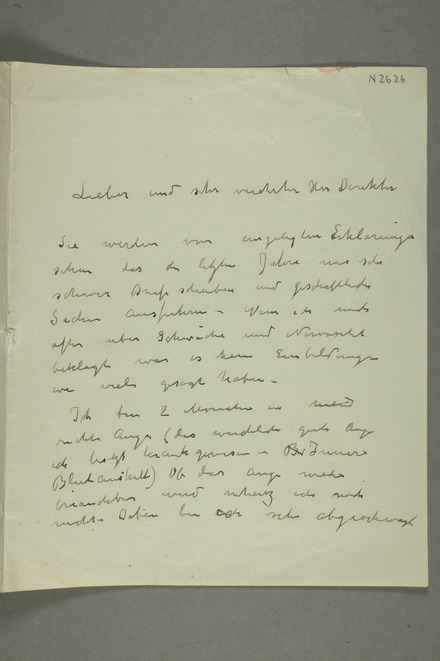 N2626
Lieber und sehr verehrter Herr Direktor
Sie werden von eingelegten Erklärungen
sehen das die letzten Jahre mir sehr
schwer Briefe schreiben und geschäftliche
Sachen ausführen – Wenn ich mich
öfter über Schwäche und Nervosität
beklagt war es kein Einbildungen
wie viele gesagt haben –
Ich bin 2 Monaten an mein
rechte Auge (das wirklich gute Auge
ich besitze) krank gewesen – Innere
Blut) Ob das Auge mehr
wird ich noch
nicht Dabei bin ich sehr abgeschwächt